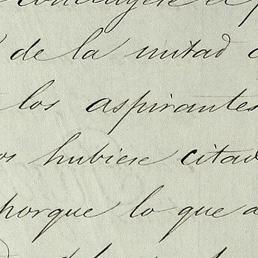 de la mitad
los aspirantes
hubiese citad
porque lo que a